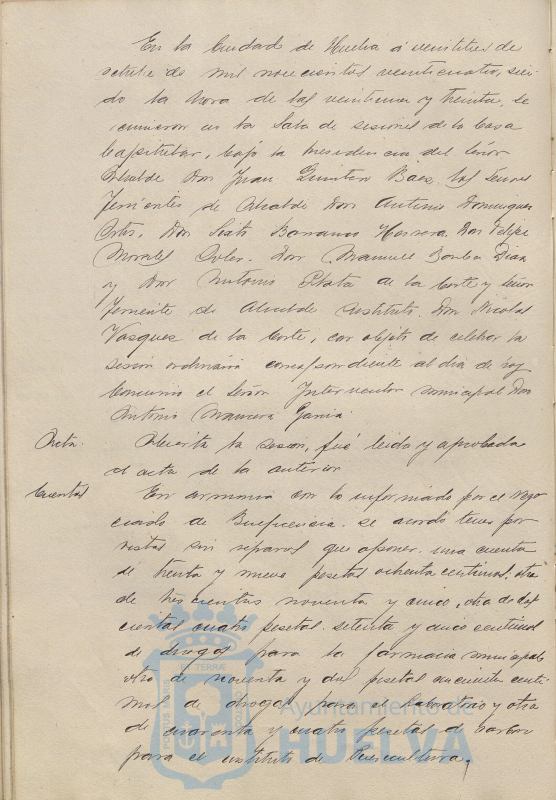 En la Ciudad de Huelva á veintitres de
octubre de mil novecientos veinticuatro, sien-
do la hora de las veintiuna y treinta, se
reunieron en la Sala de sesiones de la Casa
Capitular, bajo la Presidencia del Señor
Alcalde Don Juan Quintero Báez, los Señores
Tenientes de Alcalde Don Antonio Dominguez
Ortiz, Don Sixto Barranco Herrera, Don Felipe
Morales Soler, Don Manuel Borba Diaz
y Don Antonio Plata de la Corte y Señor
Teniente de Alcalde sustituto, Don Nicolas
Vazquez de la Corte, con objeto de celebrar la
sesion ordinaria correspondiente al dia de hoy
Concurrio el Señor Interventor municipal Don
Antonio Mancera Garcia.
Acta. Abierta la sesion, fué leida y aprobada
el acta de la anterior
Cuentas En armonia con lo informado por el Nego-
ciado de Beneficencia. se acordó tener por
vistas sin reparos que oponer. una cuenta
de treinta y nueve pesetas ochenta centimos, otra
de trescientas noventa y cinco, otra de dos-
cientas cuatro pesetas setenta y cinco centimos
de drogas para la farmacia municipal,
otra de noventa y dos pesetas cincuenta centi-
mos de drogas para el laboratorio y otra
de cuarenta y cuatro pesetas de carbon
para el instituto de Puericultura.
Ayuntamiento de
HUELVA